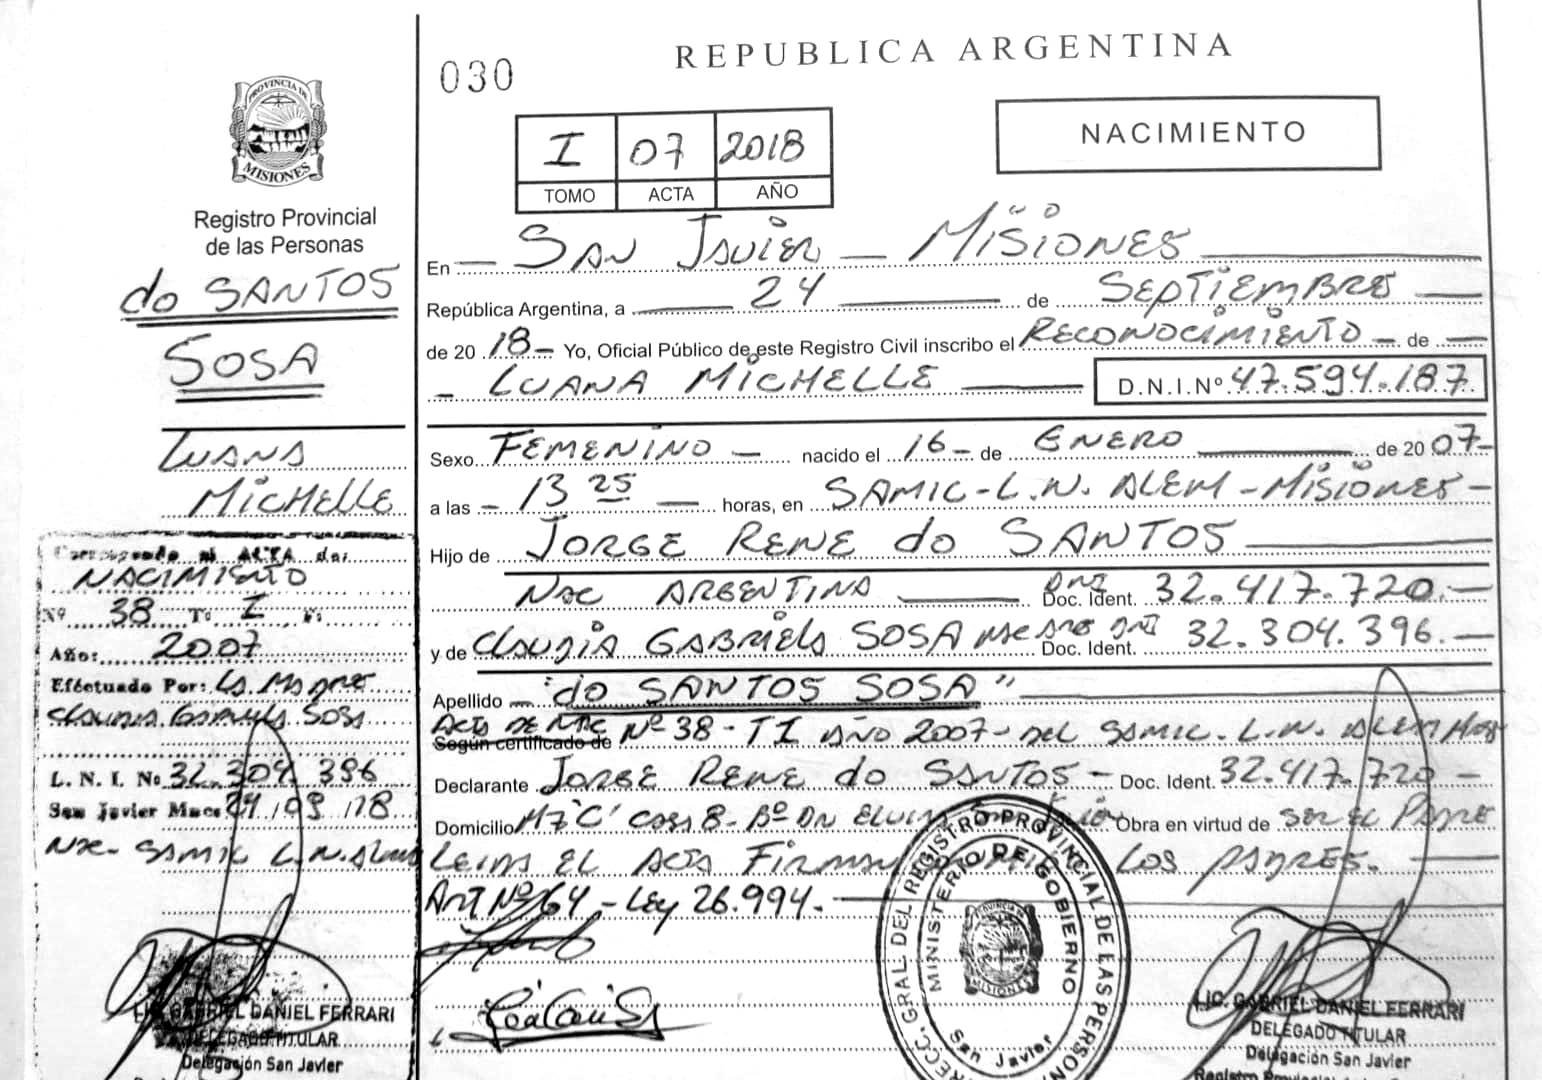 PROVINCIA DE
MISIONES
Registro Provincial
de las Personas
do SANTOS
SOSA
LUANA
MICHELLE
ACTA de:
NACIMIENTO
Nº 38 Tº I Fº
Año: 2007
Efectuado Por: La Madre
CLAUDIA GABRIELA SOSA
L. N. I. No 32.304.396
San Javier Mnes 24/09/18
NAC- SAMIC L.N. ALEM
GABRIEL DANIEL FERRARI
DELEGADO TITULAR
Delegación San Javier
030
REPUBLICA ARGENTINA
I 07 2018
TOMO ACTA AÑO
NACIMIENTO
En SAN JAVIER - MISIONES
República Argentina, a 24 de SEPTIEMBRE
de 20 18 - Yo, Oficial Público de este Registro Civil inscribo el RECONOCIMIENTO - de
- LUANA MICHELLE D.N.I.Nº 47.594.187
Sexo FEMENINO - nacido el 16 - de ENERO de 20 07 -
a las - 13 25 - horas, en SAMIC - L.N. ALEM - MISIONES -
Hijo de JORGE RENE do SANTOS
NAC ARGENTINA DNI Doc. Ident. 32.417.720.-
y de CLAUDIA GABRIELA SOSA DNI Doc. Ident. 32.304.396.-
Apellido - "do SANTOS SOSA"
ACTA DE NAC Nº 38 - T I AÑO 2007 - DEL SAMIC. L.N. ALEM
Según certificado de
Declarante JORGE RENE do SANTOS - Doc. Ident. 32.417.720 -
Domicilio MZ "C" CASA 8 - Bº Obra en virtud de SER EL PADRE
LEIDA EL ACTA FIRMAN LOS PADRES.
ART Nº 64 - Ley 26.994.-
DIRECC. GRAL DEL REGISTRO PROVINCIAL DE LAS PERSON
MINISTERIO DE GOBIERNO
MISIONES
San Javier
LIC. GABRIEL DANIEL FERRARI
DELEGADO TITULAR
Delegación San Javier